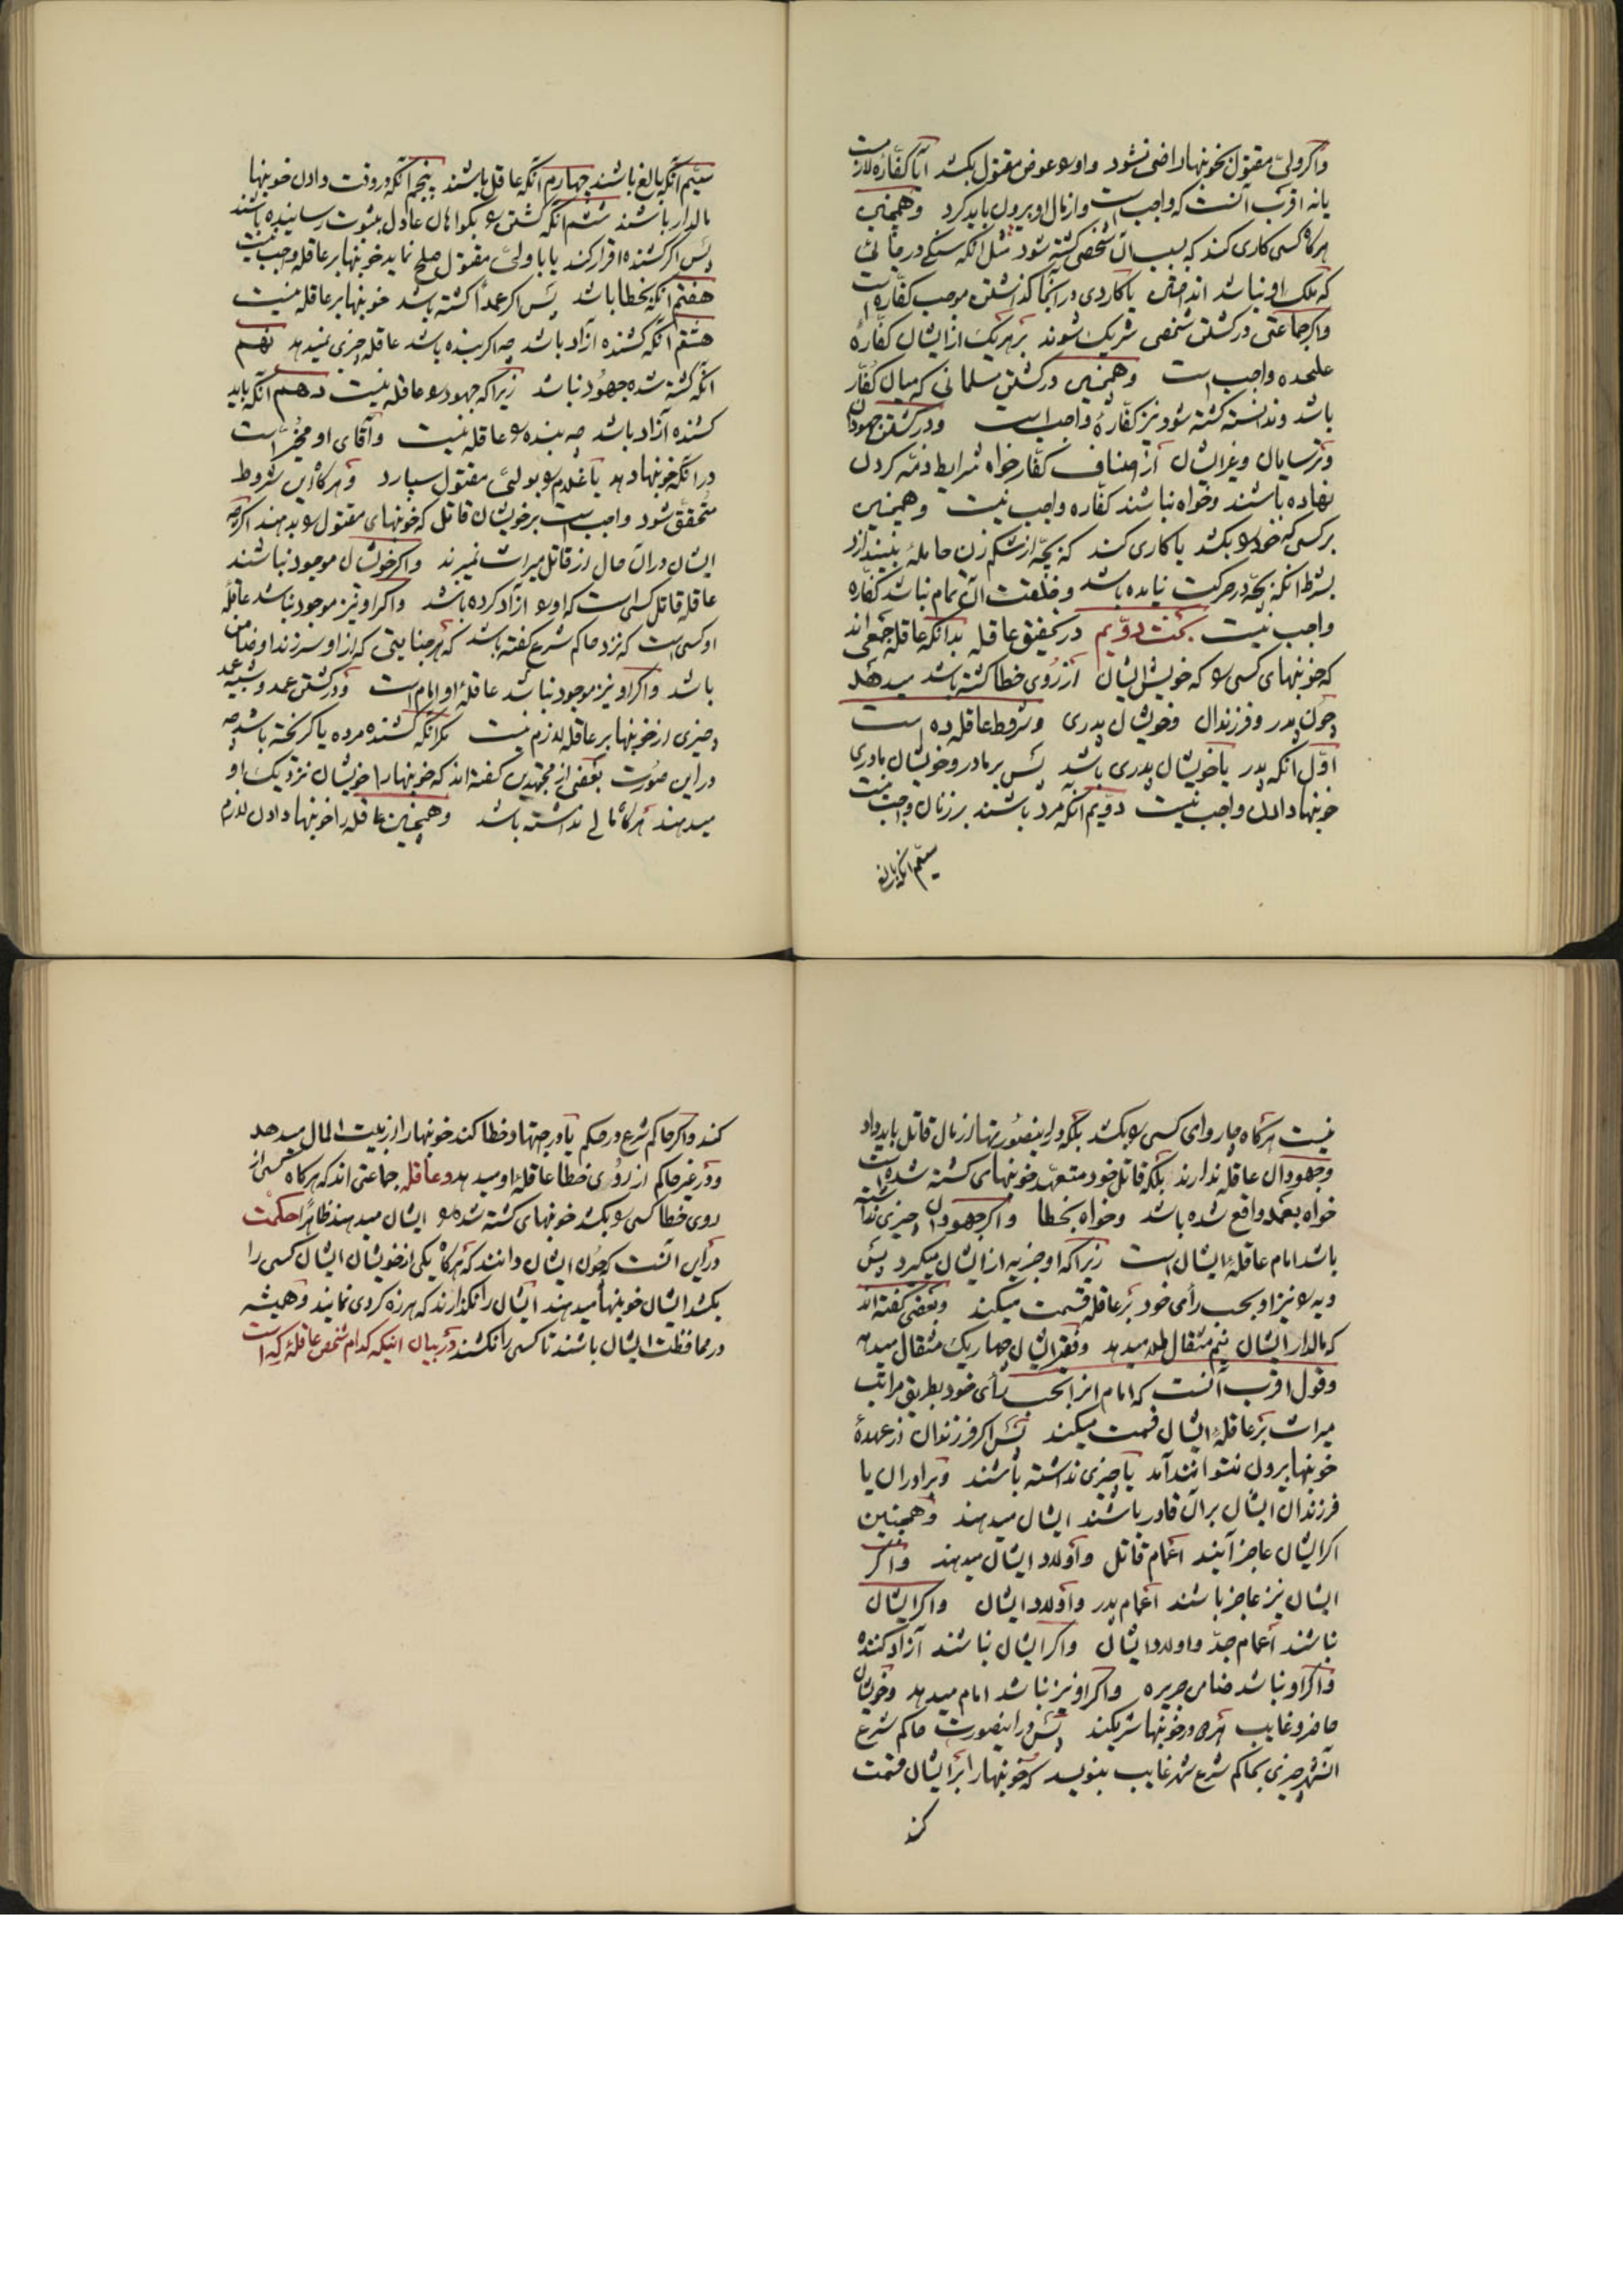 واکر ولیّ مقتول بخونبها راضی نشود واورا عوض مقتول بکشد ایا کفّاره لازمست
یا نه اقرب آنست که واجبست واز مال او بیرون باید کرد وهمچنین
هرکاه کسی کاری کند که بسبب آن شخصی کشته شود مثل انکه سنکی در جائی
که ملک او نباشد انداختن یا کاردی در آنجا کذاشتن موجب کفّاره است
واکر جماعتی در کشتن شخصی شریک شوند بر هریک از ایشان کفّارهٔ
علیحده واجب است وهمچنین در کشتن مسلمانی که میان کفّار
باشد وندانسته کشته شود نیز کفّاره واجب است ودر کشتن جهودان
وترسایان وغیر ایشان از اصناف کفّار خواه شرایط ذمّه کردن
نهاده باشند وخواه نباشند کفّاره واجب نیست وهمچنین
بر کسی که خودرا بکشد یا کاری کند که بچّه از شکم زن حامله بیندازد
بشرط انکه بچّه در حرکت نیامده باشد وخلقت آن تمام نباشد کفّاره
واجب نیست بحث دوّیم در تحقیق عاقله بدانکه عاقله جمعی اند
که خونبهای کسی را که خویش ایشان از روی خطا کشته باشد میدهند
چون پدر وفرزندان وخویشان پدری وشروط عاقله ده است
اوّل انکه پدر یا خویشان پدری باشد پس بر مادر وخویشان مادری
خونبها دادن واجب نیست دوّیم انکه مرد باشند بر زنان واجب نیست
سیّم انکه بالغ
سیّم انکه بالغ باشند چهارم انکه عاقل باشند پنجم انکه در وقت دادن خونبها
مالدار باشند ششم انکه کشتن را بکواهان عادل بثبوت رسانیده باشند
پس اکر کشنده اقرار کند یا با ولیّ مقتول صلح نماید خونبها بر عاقله واجب نیست
هفتم انکه بخطا باشد پس اکر عمداً کشته باشد خونبها بر عاقله نیست
هشتم انکه کشنده ازاد باشد چه اکر بنده باشد عاقله چیزی نمیدهد نهم
انکه کشته شده جهود نباشد زیرا که جهود را عاقله نیست دهم انکه باید
کشنده آزاد باشد چه بنده را عاقله نیست وآقای او مخیّر است
در انکه خونبها دهد یا غلام را بولیّ مقتول سپارد وهرکاه این شروط
متحقق شود واجب است بر خویشان قاتل که خونبهای مقتول را بدهند اکرچه
ایشان در آن حال از قاتل میراث نمیبرند واکر خویشان موجود نباشند
عاقله قاتل کسی است که اورا ازاد کرده باشد واکر او نیز موجود نباشد عاقلهٔ
او کسی است که نزد حاکم شرع کفته باشد که هر جنایتی که از او سر زند او ضامن
باشد واکر او نیز موجود نباشد عاقلهٔ او امام است ودر کشتن عمد وشبیه عمد
چیزی از خونبها بر عاقله لازم نیست مکر انکه کشنده مرده یا کریخته باشد چه
در این صورت بعضی از مجتهدین کفته اند که خونبها را خویشان نزدیک او
میدهند هرکاه مالی نداشته باشد وهمچنین عاقله را خونبها دادن لازم
نیست هرکاه چاروای کسی را بکشد بلکه در اینصورت بها از مال قاتل باید داد
وجهودان عاقله ندارند بلکه قاتل خود متعهّد خونبهای کشته شده است
خواه بعمد واقع شده باشد وخواه بخطا واکر جهودان چیزی نداشته
باشد امام عاقلهٔ ایشان است زیرا که او جزیه از ایشان میکیرد پس
دیه را نیز او بحسب رأی خود بر عاقله قسمت میکند وبعضی کفته اند
که مالدار ایشان نیم مثقال طلا میدهد وفقیر ایشان چهار یک مثقال میدهد
وقول اقرب آنست که امام انرا بحسب رأی خود بطریق مراتب
میراث بر عاقلهٔ ایشان قسمت میکند پس اکر فرزندان از عهدهٔ
خونبها بیرون نتوانند آمد یا چیزی نداشته باشند وبرادران یا
فرزندان ایشان بر آن قادر باشند ایشان میدهند وهمچنین
اکر ایشان عاجز آیند اعمام قاتل واولاد ایشان میدهند واکر
ایشان نیز عاجز باشند اعمام پدر واولاد ایشان واکر ایشان
نباشند اعمام جدّ واولاد ایشان واکر ایشان نباشند آزاد کننده
واکر او نباشد ضامن جریره واکر او نیز نباشد امام میدهد وخویشان
حاضر وغایب همه در خونبها شریکند پس در اینصورت حاکم شرع
آنشهر چیزی بحاکم شرع شهر غایب بنویسد که خونبها را بر ایشان قسمت
کند
کند واکر حاکم شرع در حکم یا در اجتهاد خطا کند خونبها را از بیت المال میدهد
ودر غیر حاکم از روی خطا عاقلهٔ او میدهد وعاقله جماعتی اند که هرکاه کسی از
روی خطا کسی را بکشد خونبهای کشته شده را ایشان میدهند ظاهراً حکمت
در این آنست که چون ایشان دانند که هرکاه یکی از خویشان ایشان کسی را
بکشد ایشان خونبها میدهند ایشان را نکذارند که هرزه کردی نمایند وهمیشه
در محافظت ایشان باشند تا کسی را نکشند ودر بیان اینکه کدام شخص عاقلهٔ که است